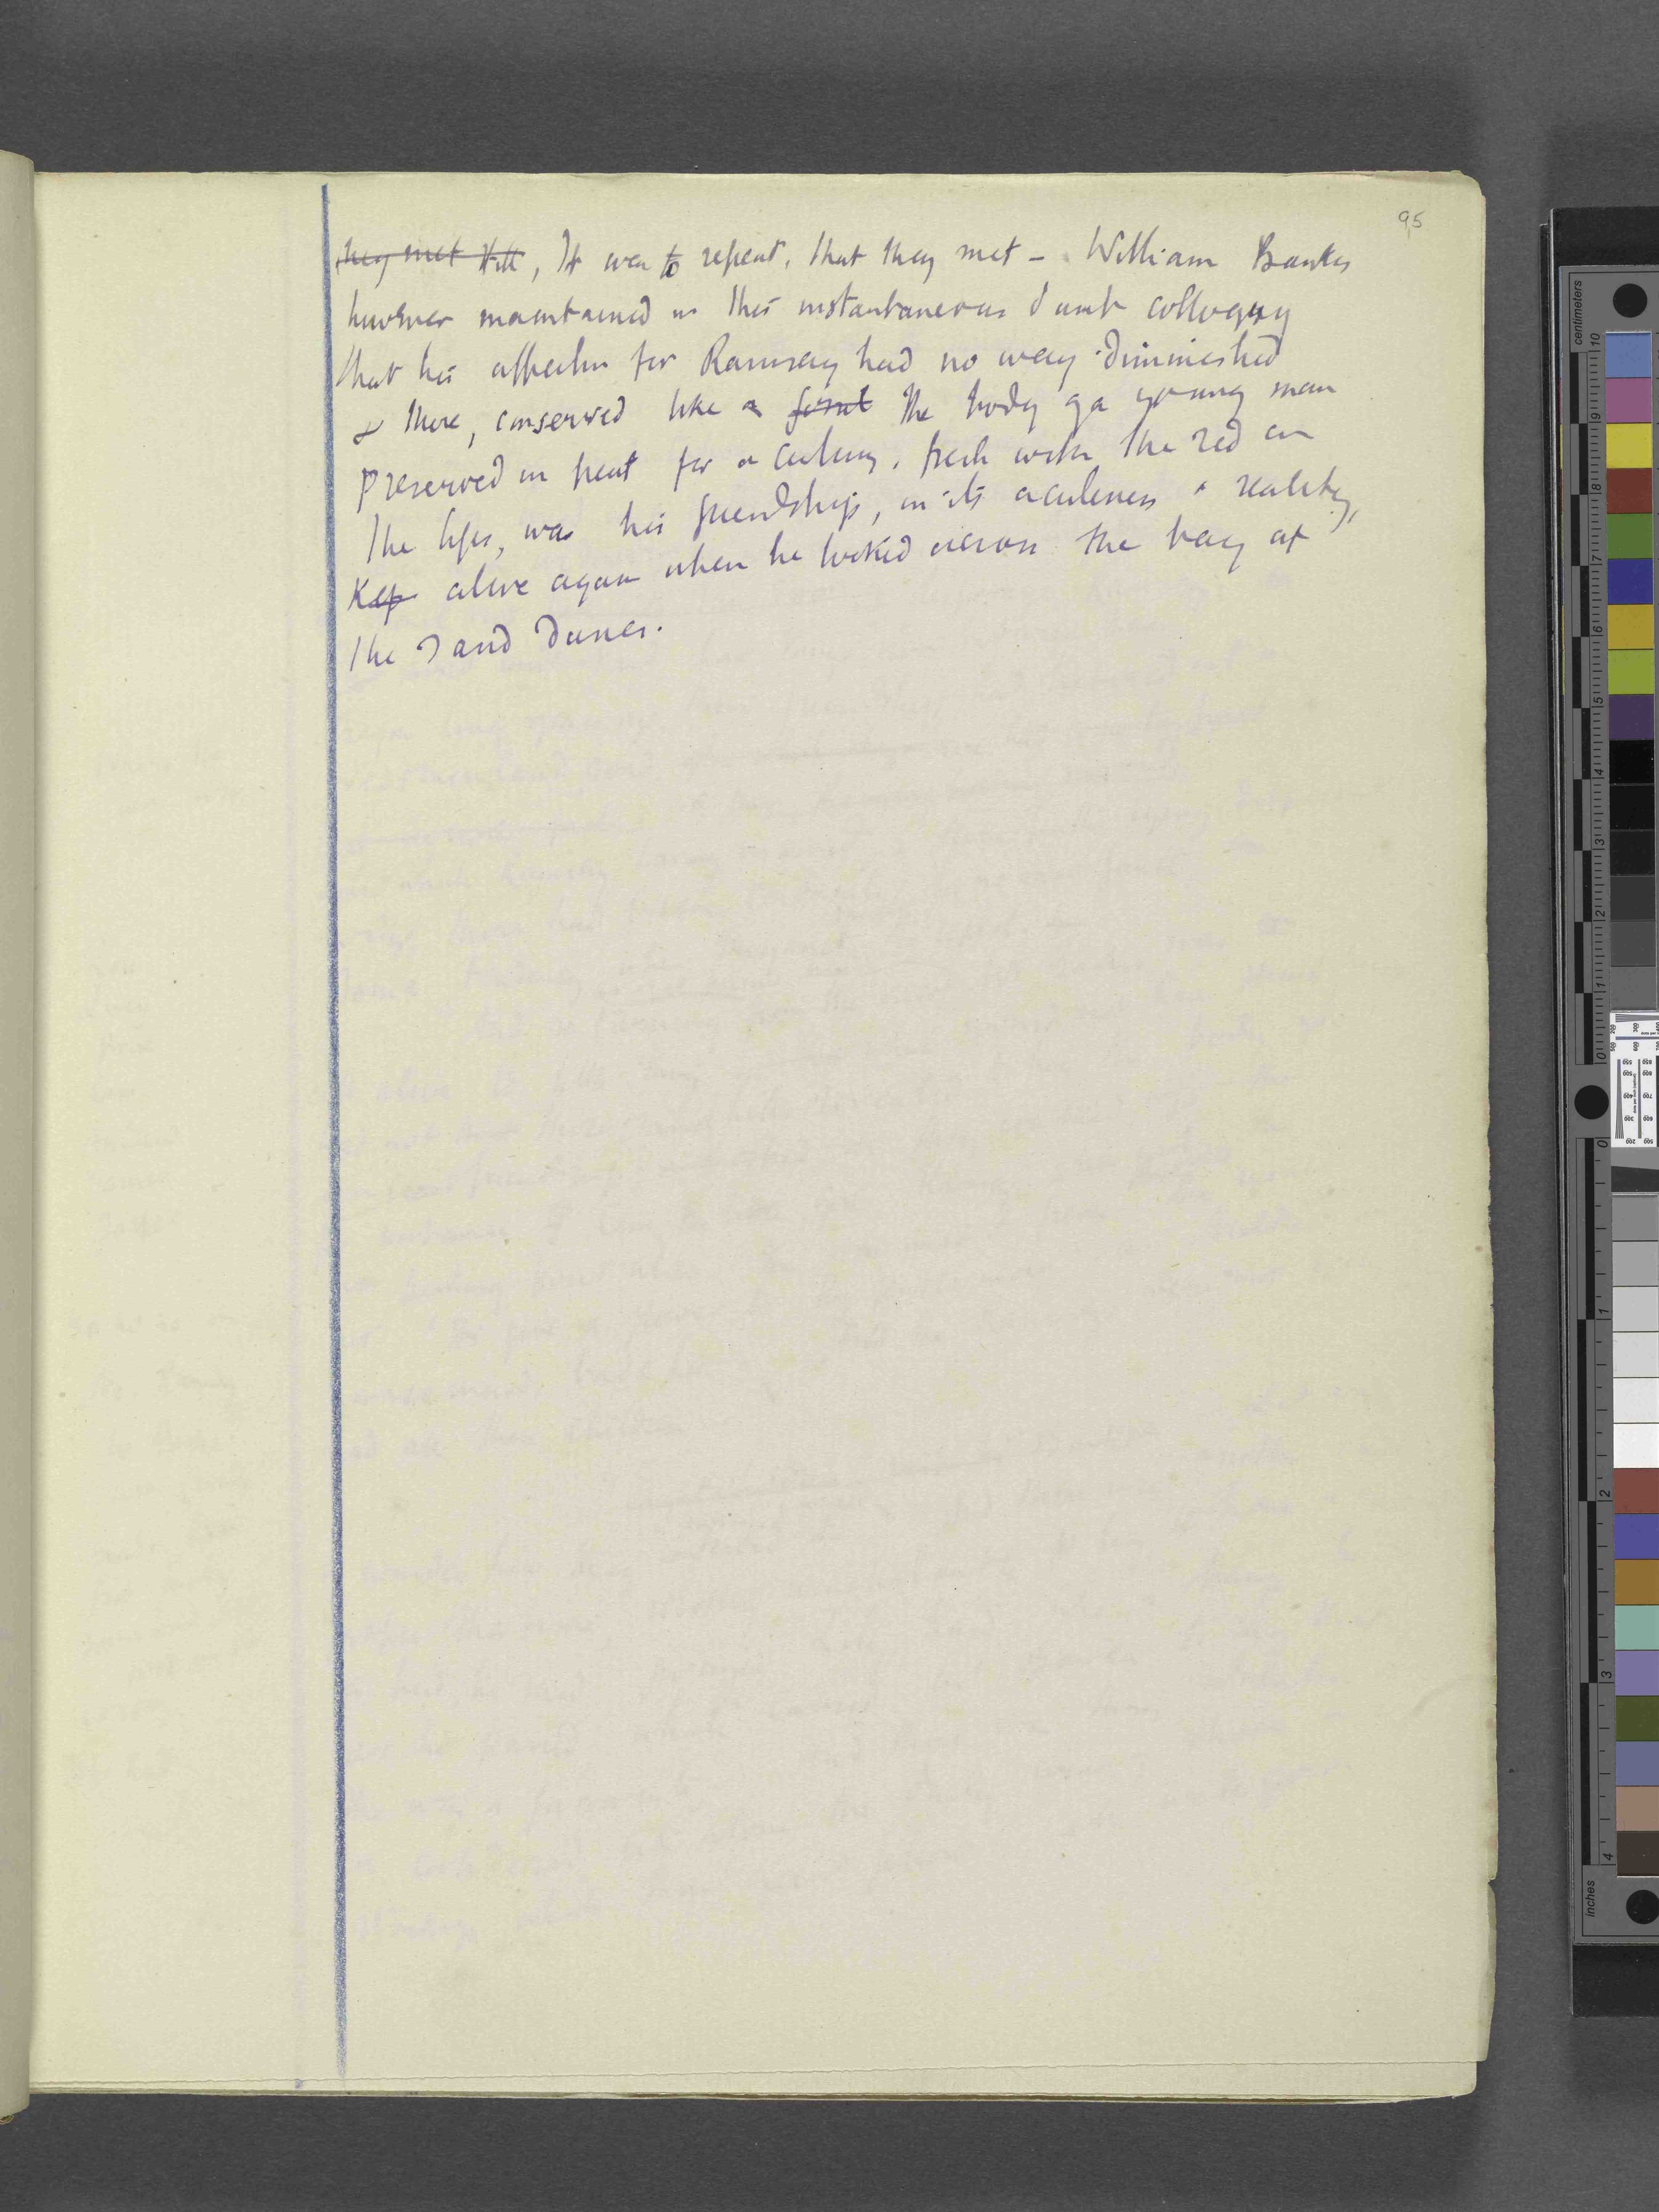 95
they met still, It was to repeat, that they met - William Bankes
however maintained in this instantaneous dumb colloquy
that his affection for Ramsay had no way diminished
& there, conserved like a fossil the body of a young man
preserved in peat for a century, fresh with the red on
the lips, was his friendship, in its acuteness & reality,
Kep alive again when he looked across the bay at
the sand dunes.
centimeters
10
9
8
7
6
5
4
3
2
1
0
0
1
2
3
4
inches